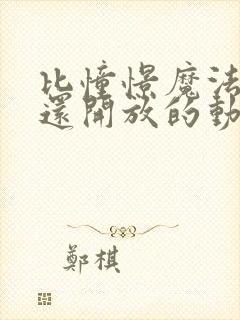 比憧憬魔法
還開放的動
鄭棋